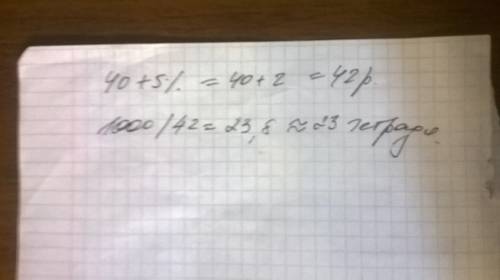 40 + 5% = 40 + 2 = 42 р.
1000 / 42 = 23,8 ≈ 23 тетради.